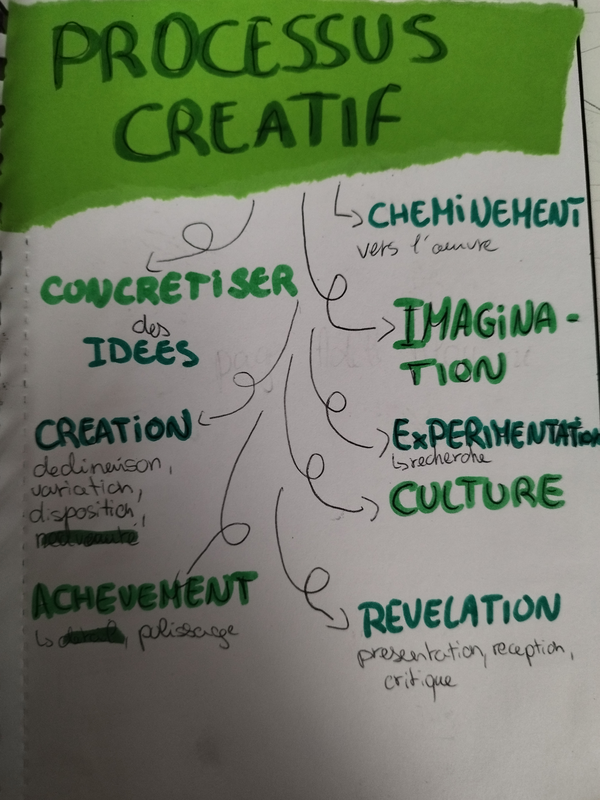 PROCESSUS
CREATIF
CHEMINEMENT
vers l'œuvre
CONCRETISER
des
IDEES
IMAGINA-
TION
CREATION
declineaison,
variation,
disposition,
EXPERIMENTATION
↳recherche
CULTURE
ACHEVEMENT
↳ , polissage
REVELATION
presentation, reception,
critique